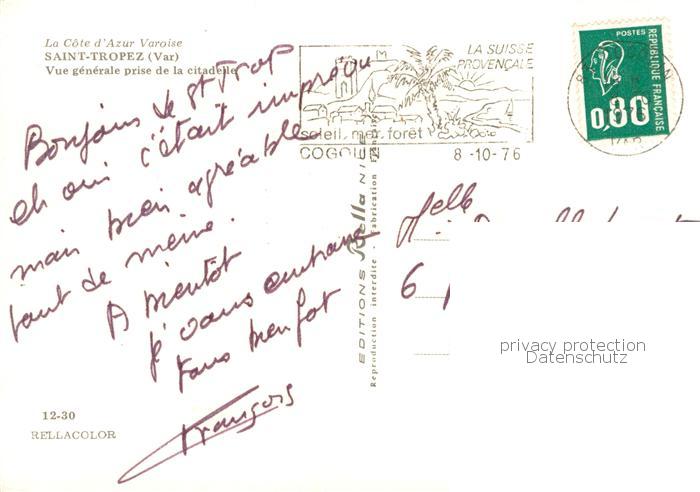 La Côte d'Azur Varoise
SAINT-TROPEZ (Var)
Vue générale prise de la citadelle
Bonjour de St Trop
eh oui c'était imprévu
mais bien agréable
tout de même.
A bientôt
je vous embrasse
tous bien fort
François
12-30
RELLACOLOR
LA SUISSE
PROVENÇALE
soleil. mer. forêt
COGOLIN
8-10-76
POSTES
REPUBLIQUE FRANÇAISE
0,80
VAR
EDITIONS Rella NICE
Reproduction interdite - Fabrication Française
Melle
6
privacy protection
Datenschutz